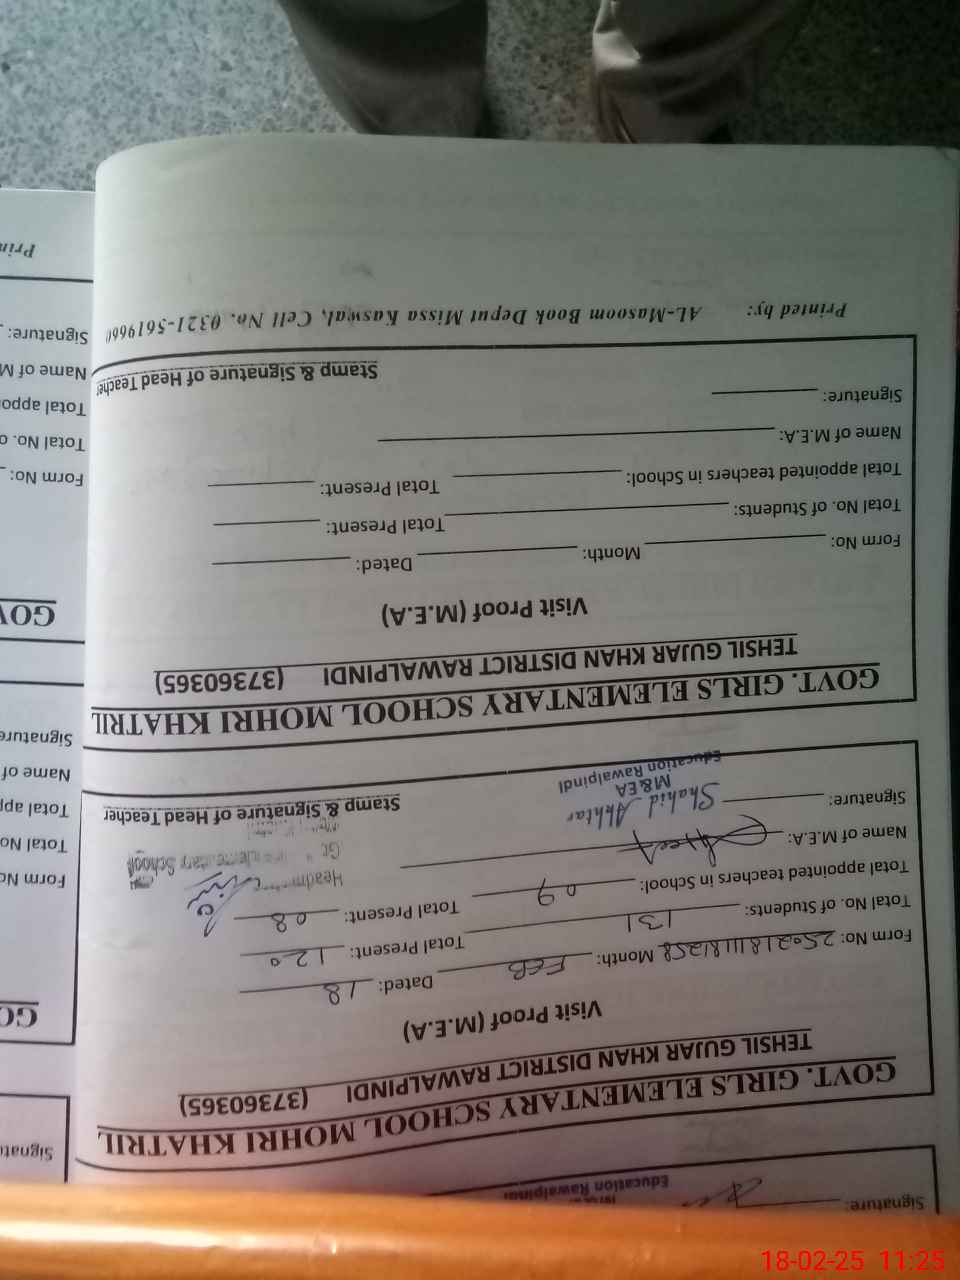 Signature:
Education Rawalpindi
GOVT. GIRLS ELEMENTARY SCHOOL MOHRI KHATRIL
TEHSIL GUJAR KHAN DISTRICT RAWALPINDI (37360365)
Visit Proof (M.E.A)
Form No: Month: FEB Dated: 18
Total No. of Students: 131 Total Present: 120
Total appointed teachers in School: 09 Total Present: 08
Name of M.E.A:
Signature: Shahid Akhtar
M&EA
Education Rawalpindi
Stamp & Signature of Head Teacher
GOVT. GIRLS ELEMENTARY SCHOOL MOHRI KHATRIL
TEHSIL GUJAR KHAN DISTRICT RAWALPINDI (37360365)
Visit Proof (M.E.A)
Form No: Month: Dated:
Total No. of Students: Total Present:
Total appointed teachers in School: Total Present:
Name of M.E.A:
Signature:
Stamp & Signature of Head Teacher
Printed by: AL-Masoom Book Deput Missa Kaswal, Cell No. 0321-5619660
Form No
Total No
Total app
Name of
Signature
GOV
Form No:
Total No. o
Total appo
Name of M
Signature:
Prin
18-02-25 11:25